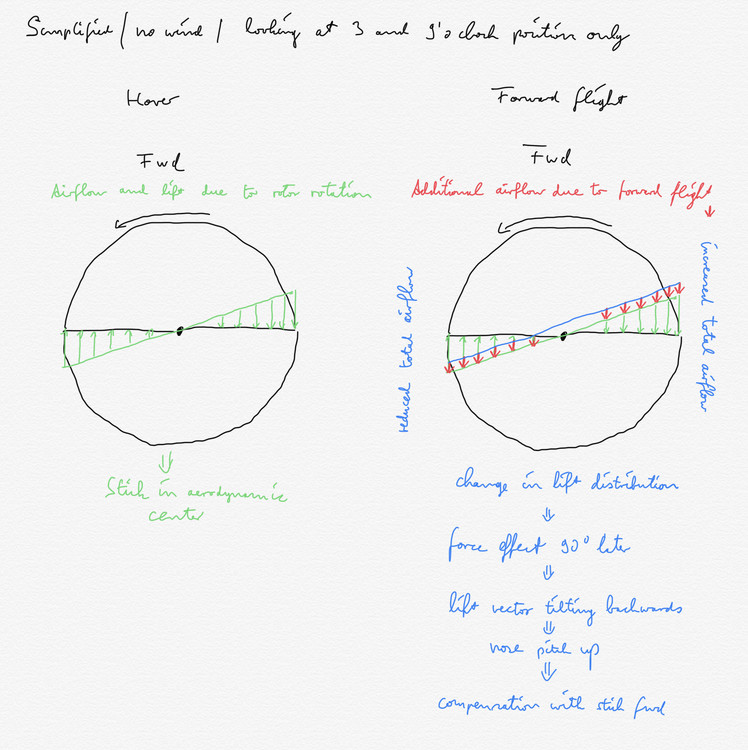 Simplified / no wind / looking at 3 and 9'o clock position only
Hover
Fwd
Airflow and lift due to rotor rotation
Stick in aerodynamic
center
Forward flight
Fwd
Additional airflow due to forward flight
reduced total airflow
increased total airflow
change in lift distribution
force effect 90° later
lift vector tilting backwards
nose pitch up
compensation with stick fwd